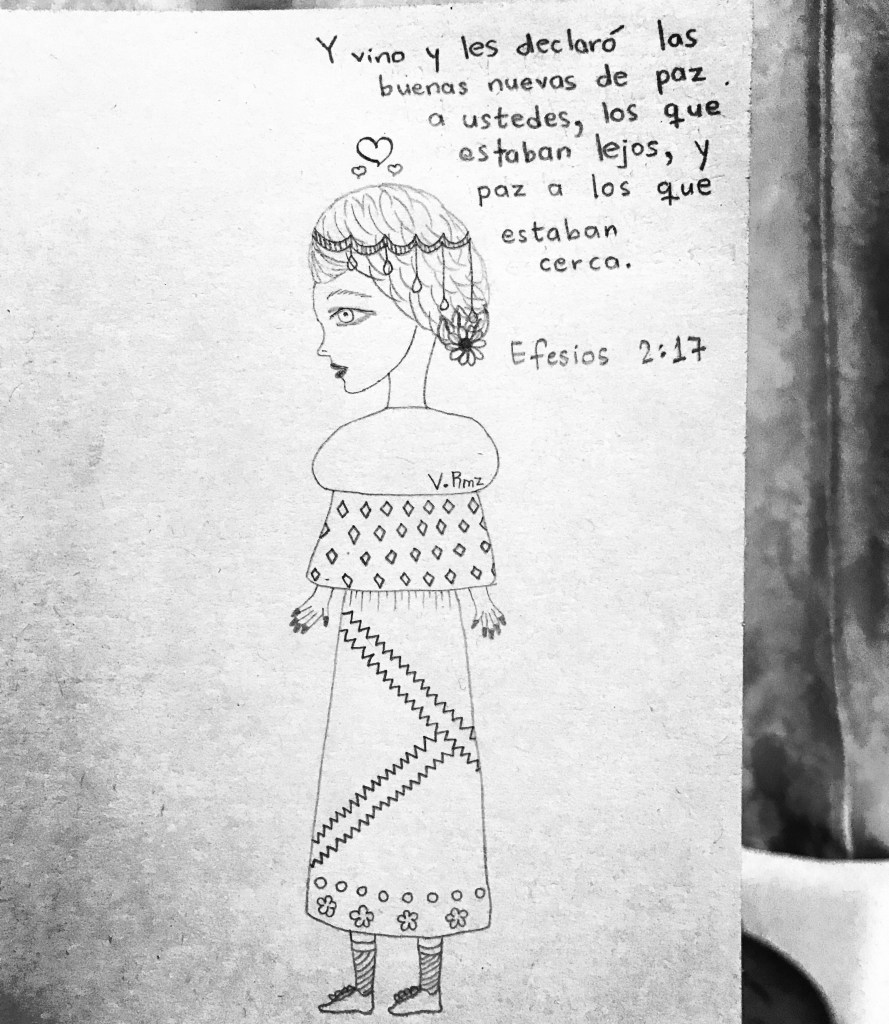 Y vino y les declaró las
buenas nuevas de paz.
a ustedes, los que
estaban lejos, y
paz a los que
estaban
cerca.
Efesios 2:17
V.Rmz